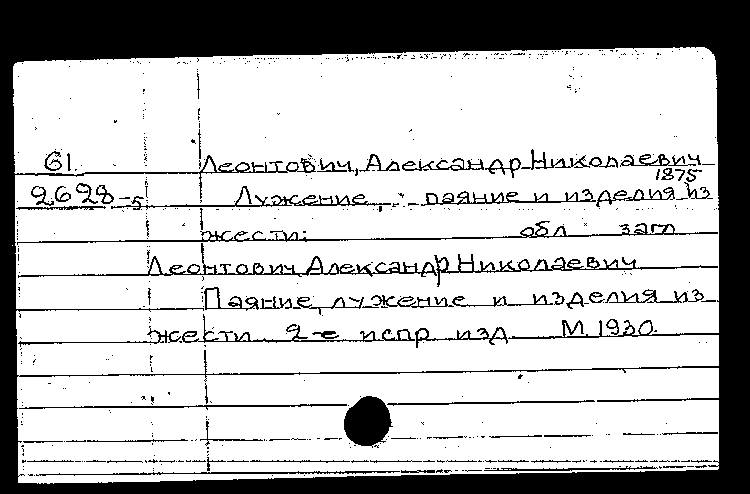 61 Леонтович, Александр Николаевич
1875
2628-5 Лужение, паяние и изделия из
жести: обл загл
Леонтович, Александр Николаевич
Паяние, лужение и изделия из
жести 2-е испр изд. М. 1930.